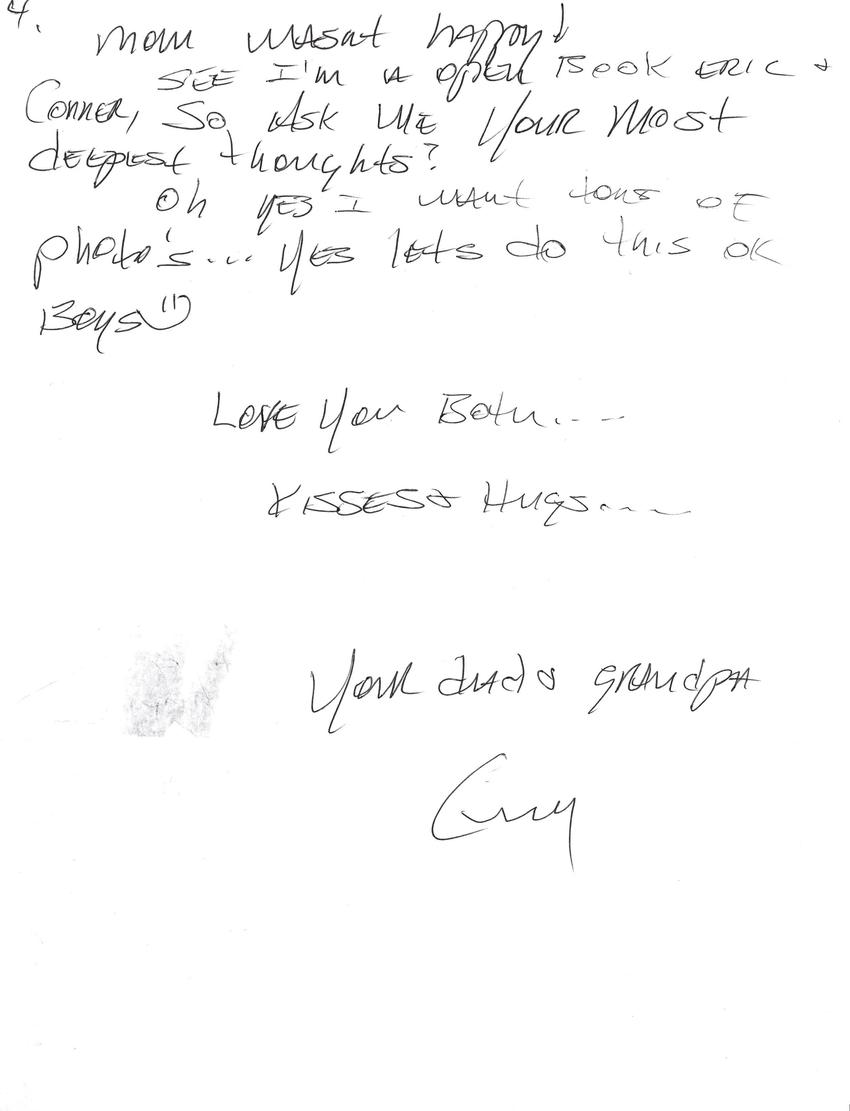 4.
Mom wasnt happy!
See I'm a open Book Eric &
Conner, So Ask me your most
deepest thoughts?
Oh yes I want tons of
photo's... yes lets do this ok
Boys
Love you Both....
Kisses & Hugs....
Your dad & grandpa